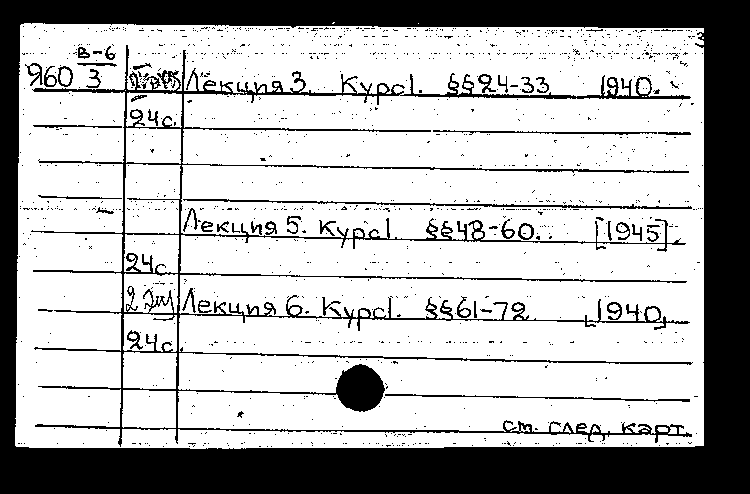 В-6
960 3 Лекция 3. Курс I. §§24-33 1940.
24с.
Лекция 5. Курс I. §§48-60. [1945].
24с.
2 экз Лекция 6. Курс I. §§61-72. [1940]
24с.
см. след. карт.